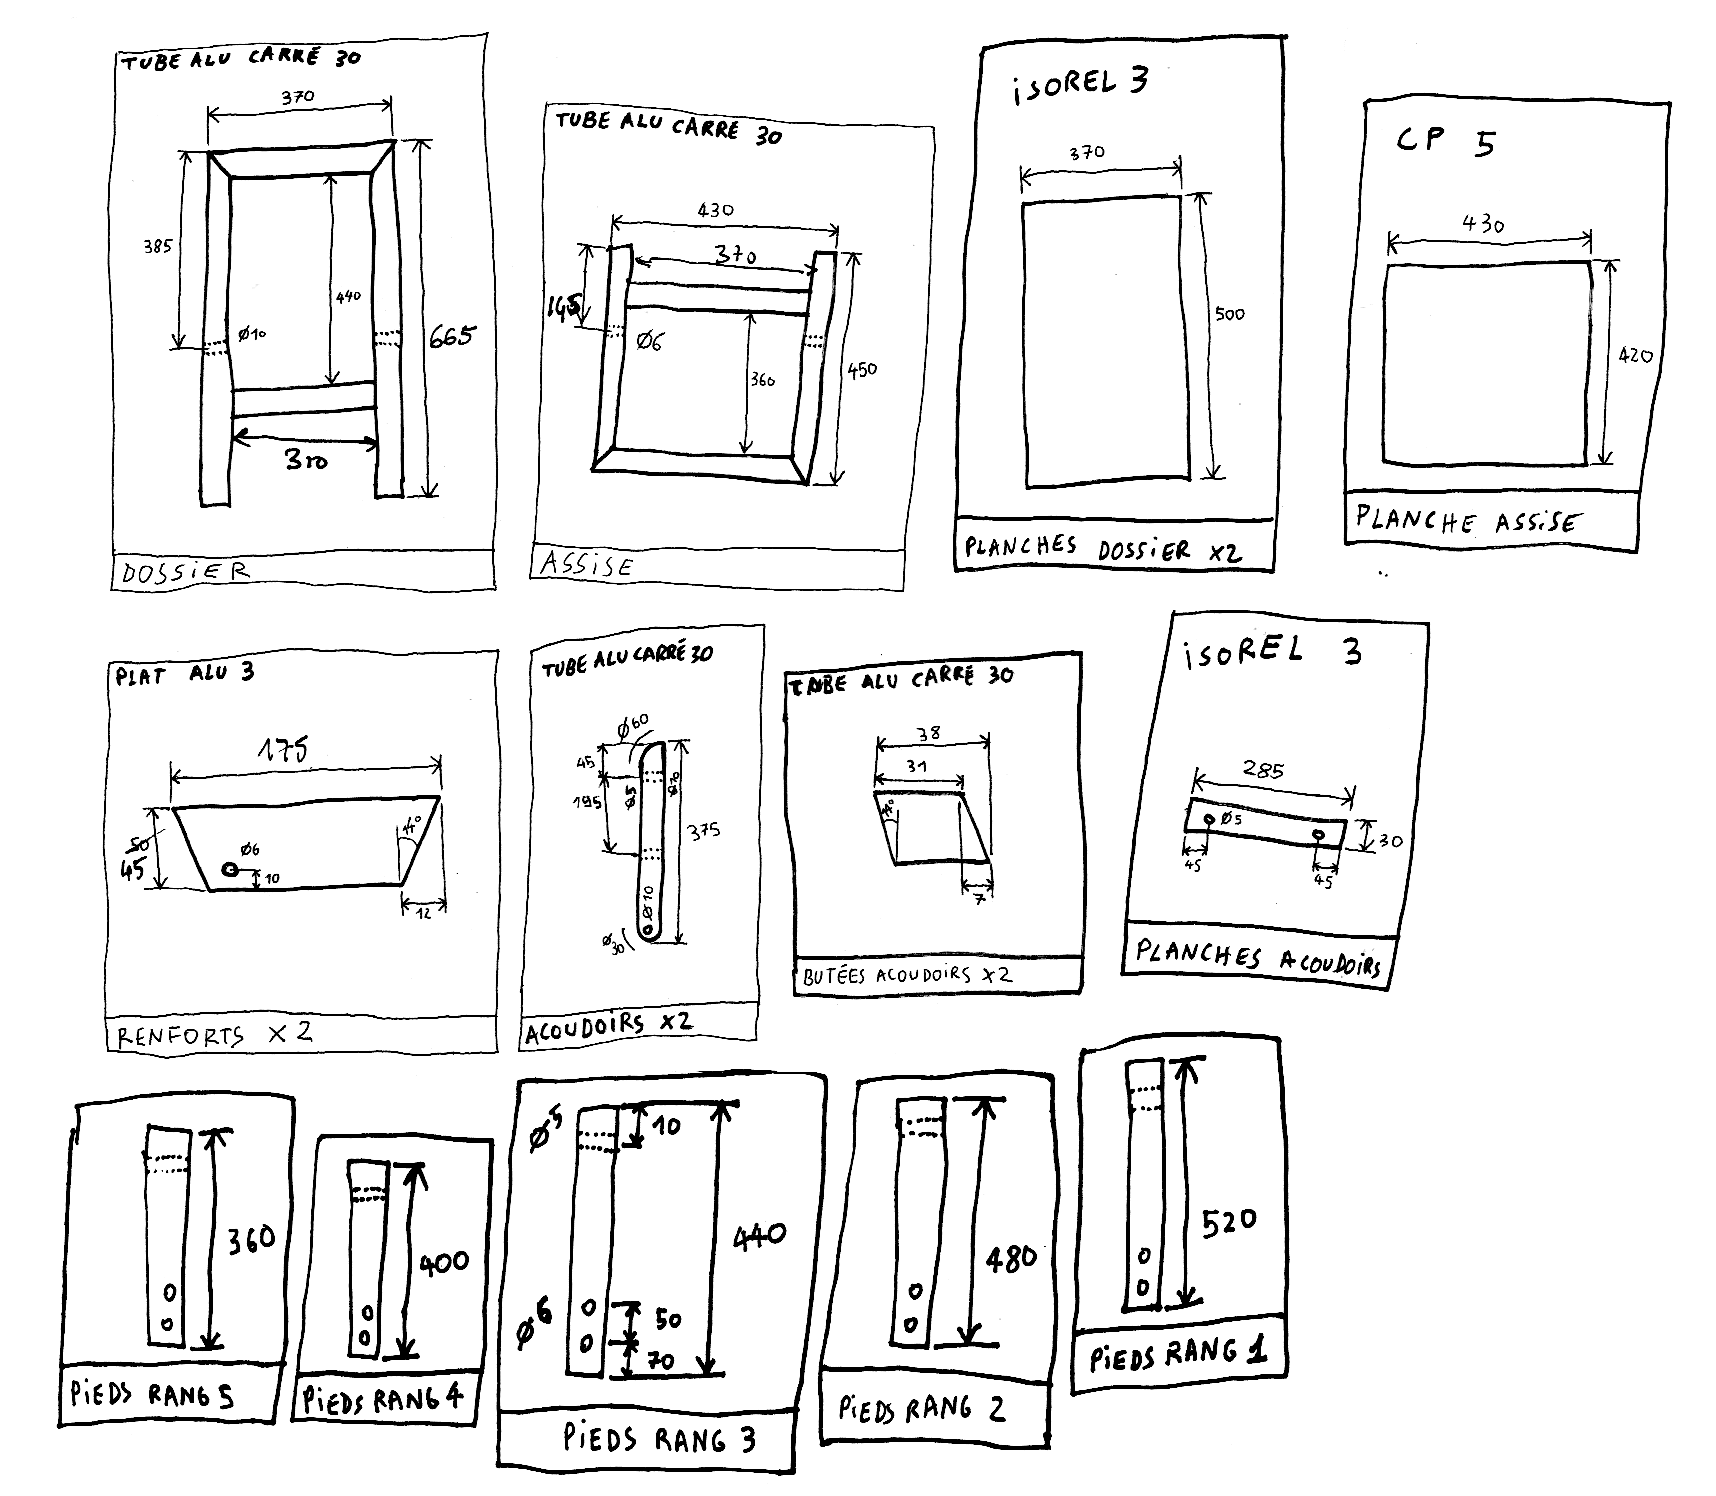 TUBE ALU CARRÉ 30
370
385
440
Ø10
665
310
DOSSiER
TUBE ALU CARRÉ 30
430
370
145
Ø6
360
450
ASSiSE
iSOREL 3
370
500
PLANCHES DOSSiER X2
CP 5
430
420
PLANCHE ASSiSE
PLAT ALU 3
175
50
45
Ø6
10
12
RENFORTS X 2
TUBE ALU CARRÉ 30
Ø60
45
195
Ø5
375
Ø10
Ø30
ACOUDOiRS X2
TUBE ALU CARRÉ 30
38
31
7
BUTÉES ACOUDOiRS X2
iSOREL 3
285
Ø5
30
45
45
PLANCHES ACOUDOiRS
360
PiEDS RANG 5
400
PiEDS RANG 4
Ø5
10
440
Ø6
50
70
PiEDS RANG 3
480
PiEDS RANG 2
520
PiEDS RANG 1